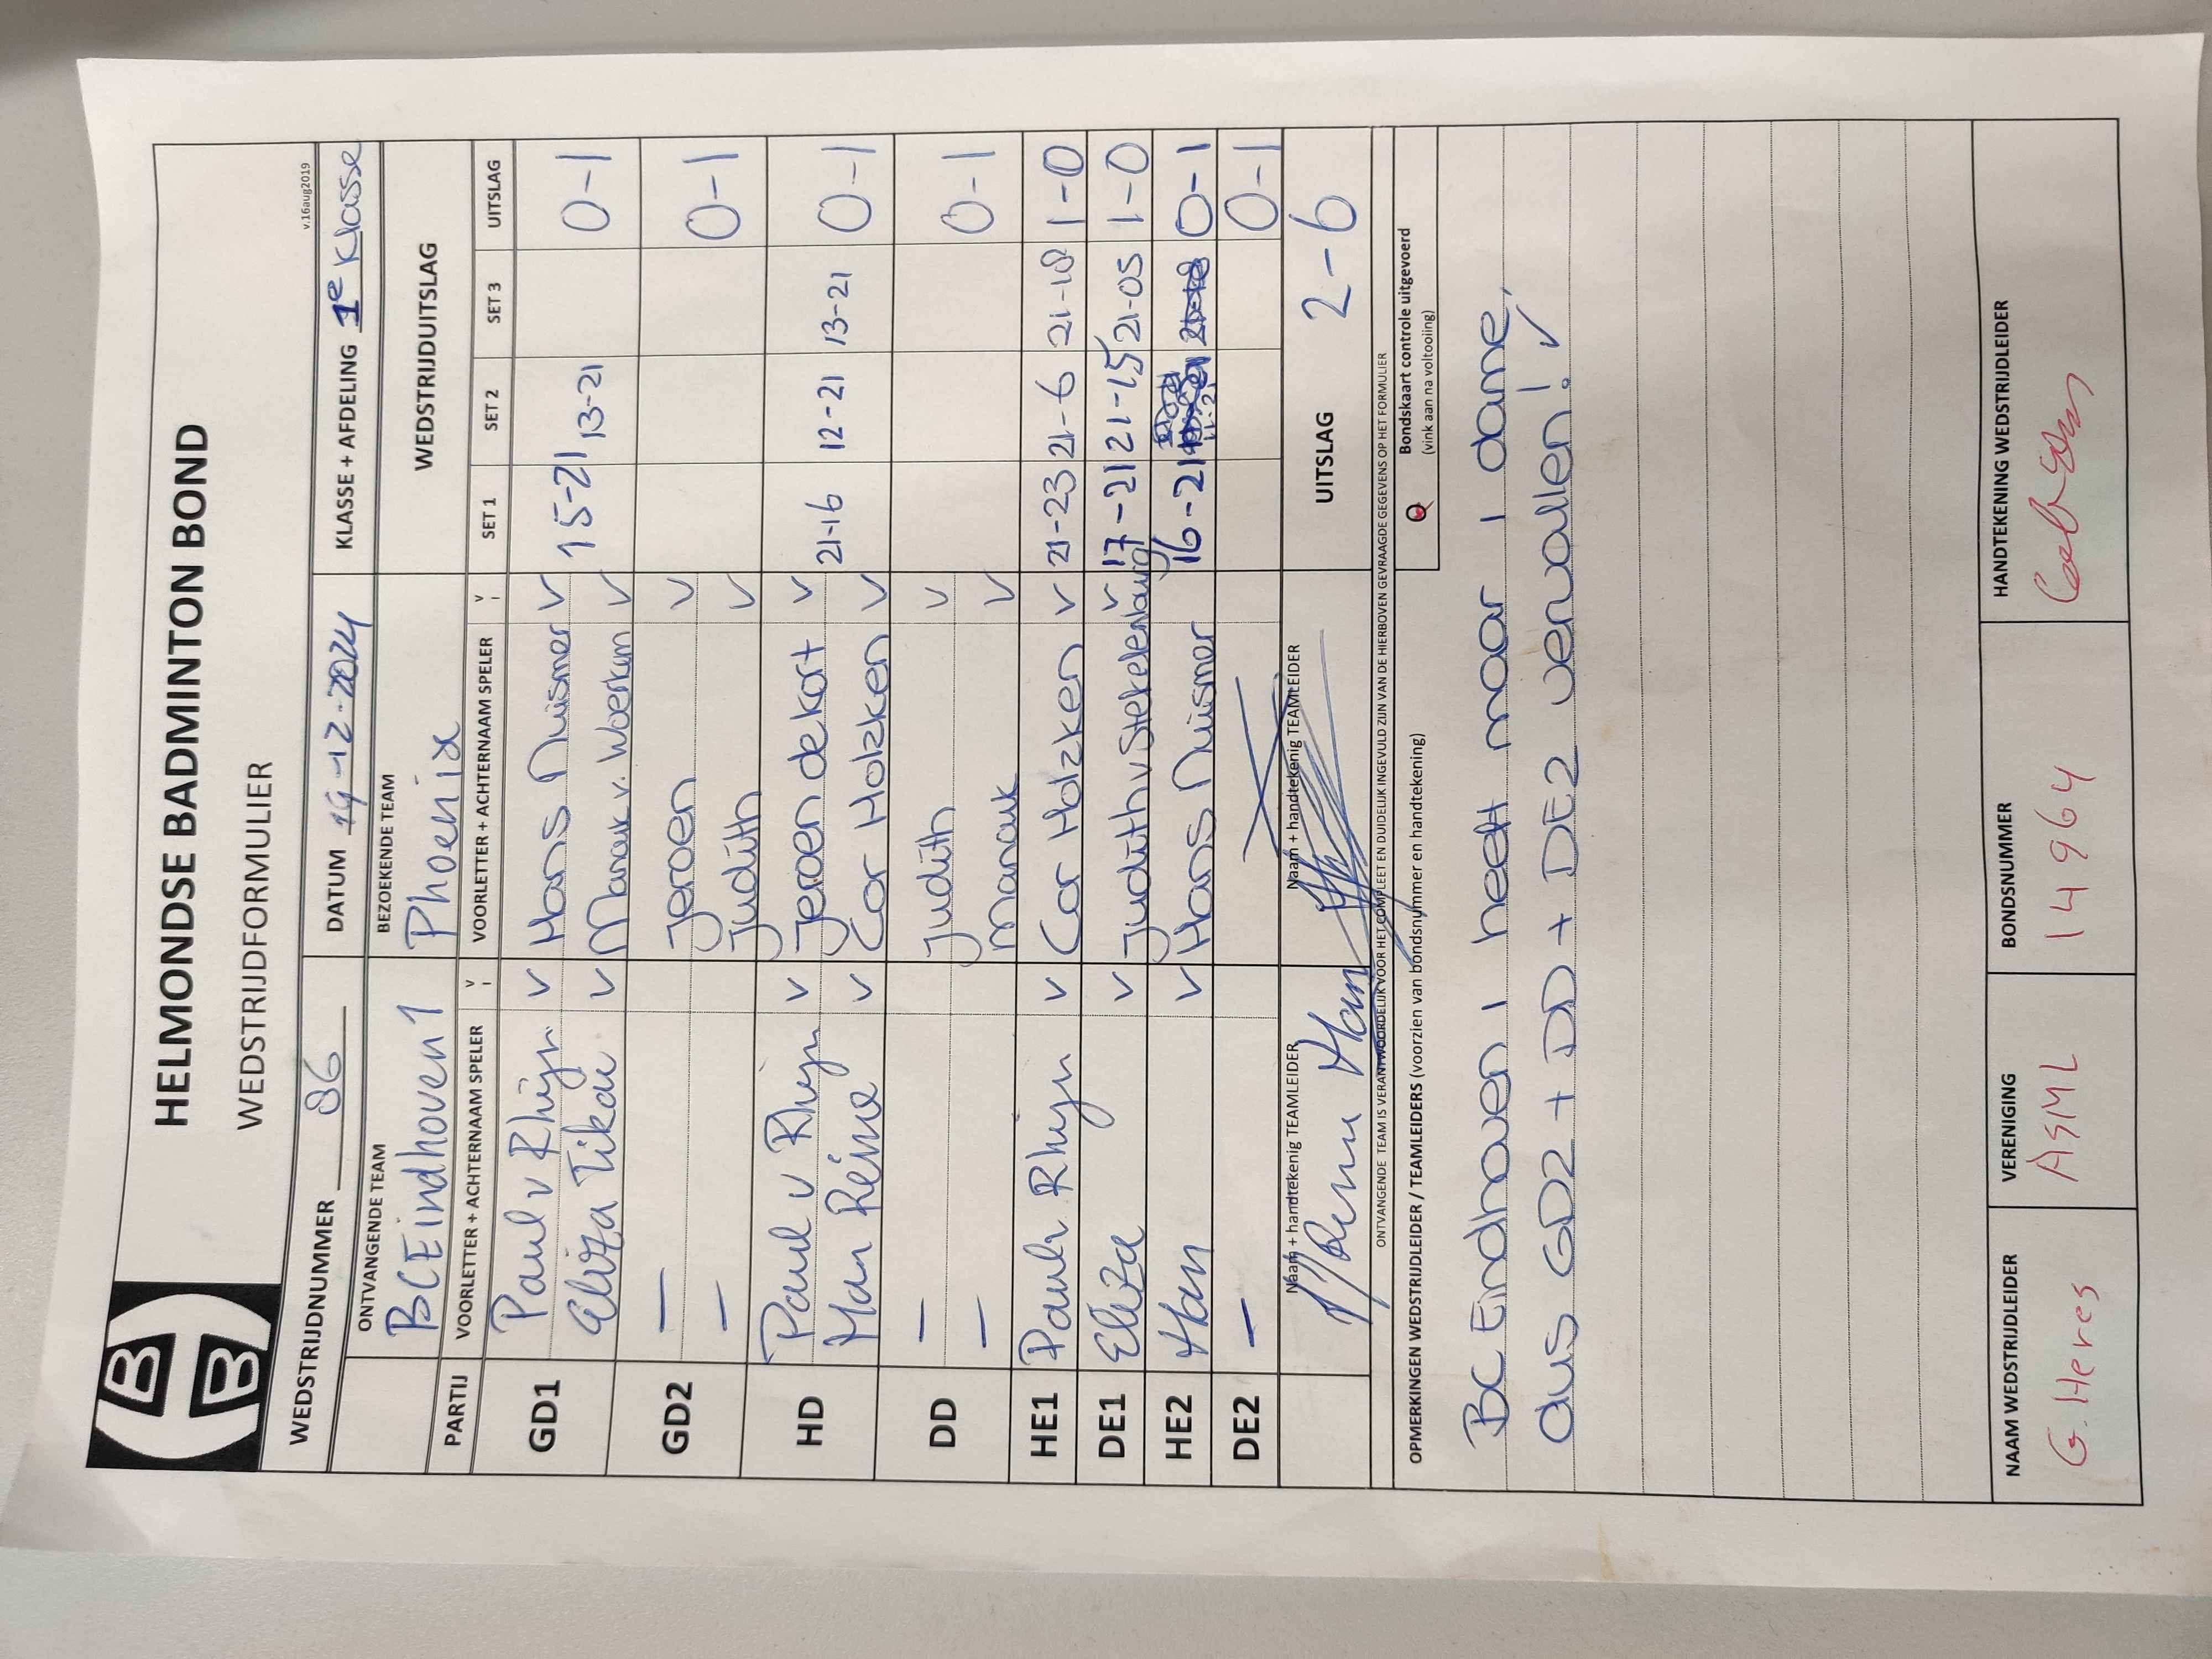 HELMONDSE BADMINTON BOND
WEDSTRIJDFORMULIER
v.16aug2019
WEDSTRIJDNUMMER 86 DATUM 19-12-2024 KLASSE + AFDELING 1e Klasse
ONTVANGENDE TEAM BEZOEKENDE TEAM WEDSTRIJDUITSLAG
BC Eindhoven 1 Phoenix
PARTIJ VOORLETTER + ACHTERNAAM SPELER V VOORLETTER + ACHTERNAAM SPELER V SET 1 SET 2 SET 3 UITSLAG
GD1 Paul v Rhijn V Hans Duismer V 15-21 13-21 0-1
Eliza Tikau V Manouk v. Woerkum V
GD2 — Jeroen V 0-1
— Judith V
HD Paul v Rhijn V Jeroen de kort V 21-16 12-21 13-21 0-1
Han Réme V Cor Holzken V
DD — Judith V 0-1
— Manouk V
HE1 Paul v Rhijn V Cor Holzken V 21-23 21-6 21-18 1-0
DE1 Eliza V Judith v Stekelenburg V 17-21 21-15 21-05 1-0
HE2 Han V Hans Duismer V 16-21 11-21 0-1
DE2 — 0-1
Naam + handtekenig TEAMLEIDER Naam + handtekenig TEAMLEIDER UITSLAG 2-6
Han
ONTVANGENDE TEAM IS VERANTWOORDELIJK VOOR HET COMPLEET EN DUIDELIJK INGEVULD ZIJN VAN DE HIERBOVEN GEVRAAGDE GEGEVENS OP HET FORMULIER
OPMERKINGEN WEDSTRIJDLEIDER / TEAMLEIDERS (voorzien van bondsnummer en handtekening) Bondskaart controle uitgevoerd
(vink aan na voltooiing)
BC Eindhoven 1 heeft maar 1 dame,
dus GD2 + DD + DE2 vervallen! ✓
NAAM WEDSTRIJDLEIDER VERENIGING BONDSNUMMER HANDTEKENING WEDSTRIJDLEIDER
G. Heres ASML 14964